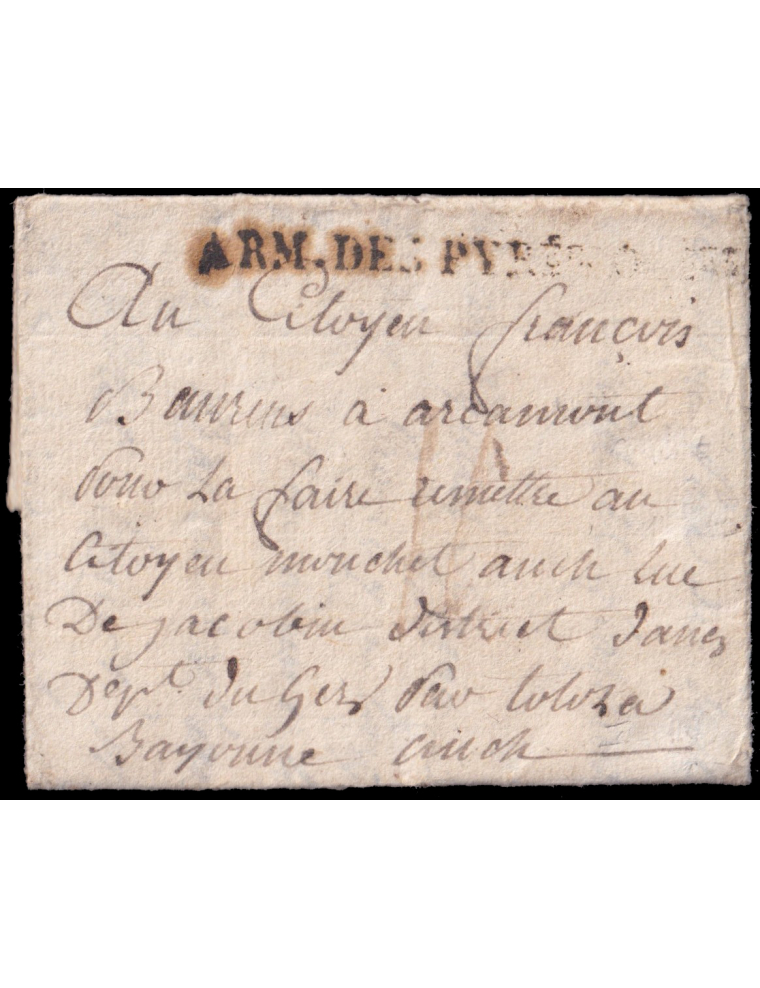 ARM. DES PYRÉN
Au Citoyen françois
Baurens a arcamont
pour La faire remettre au
Citoyen mouchet auch rue
De jacobin district Danch
Dept. du Gers par tolosa
Bayonne auch